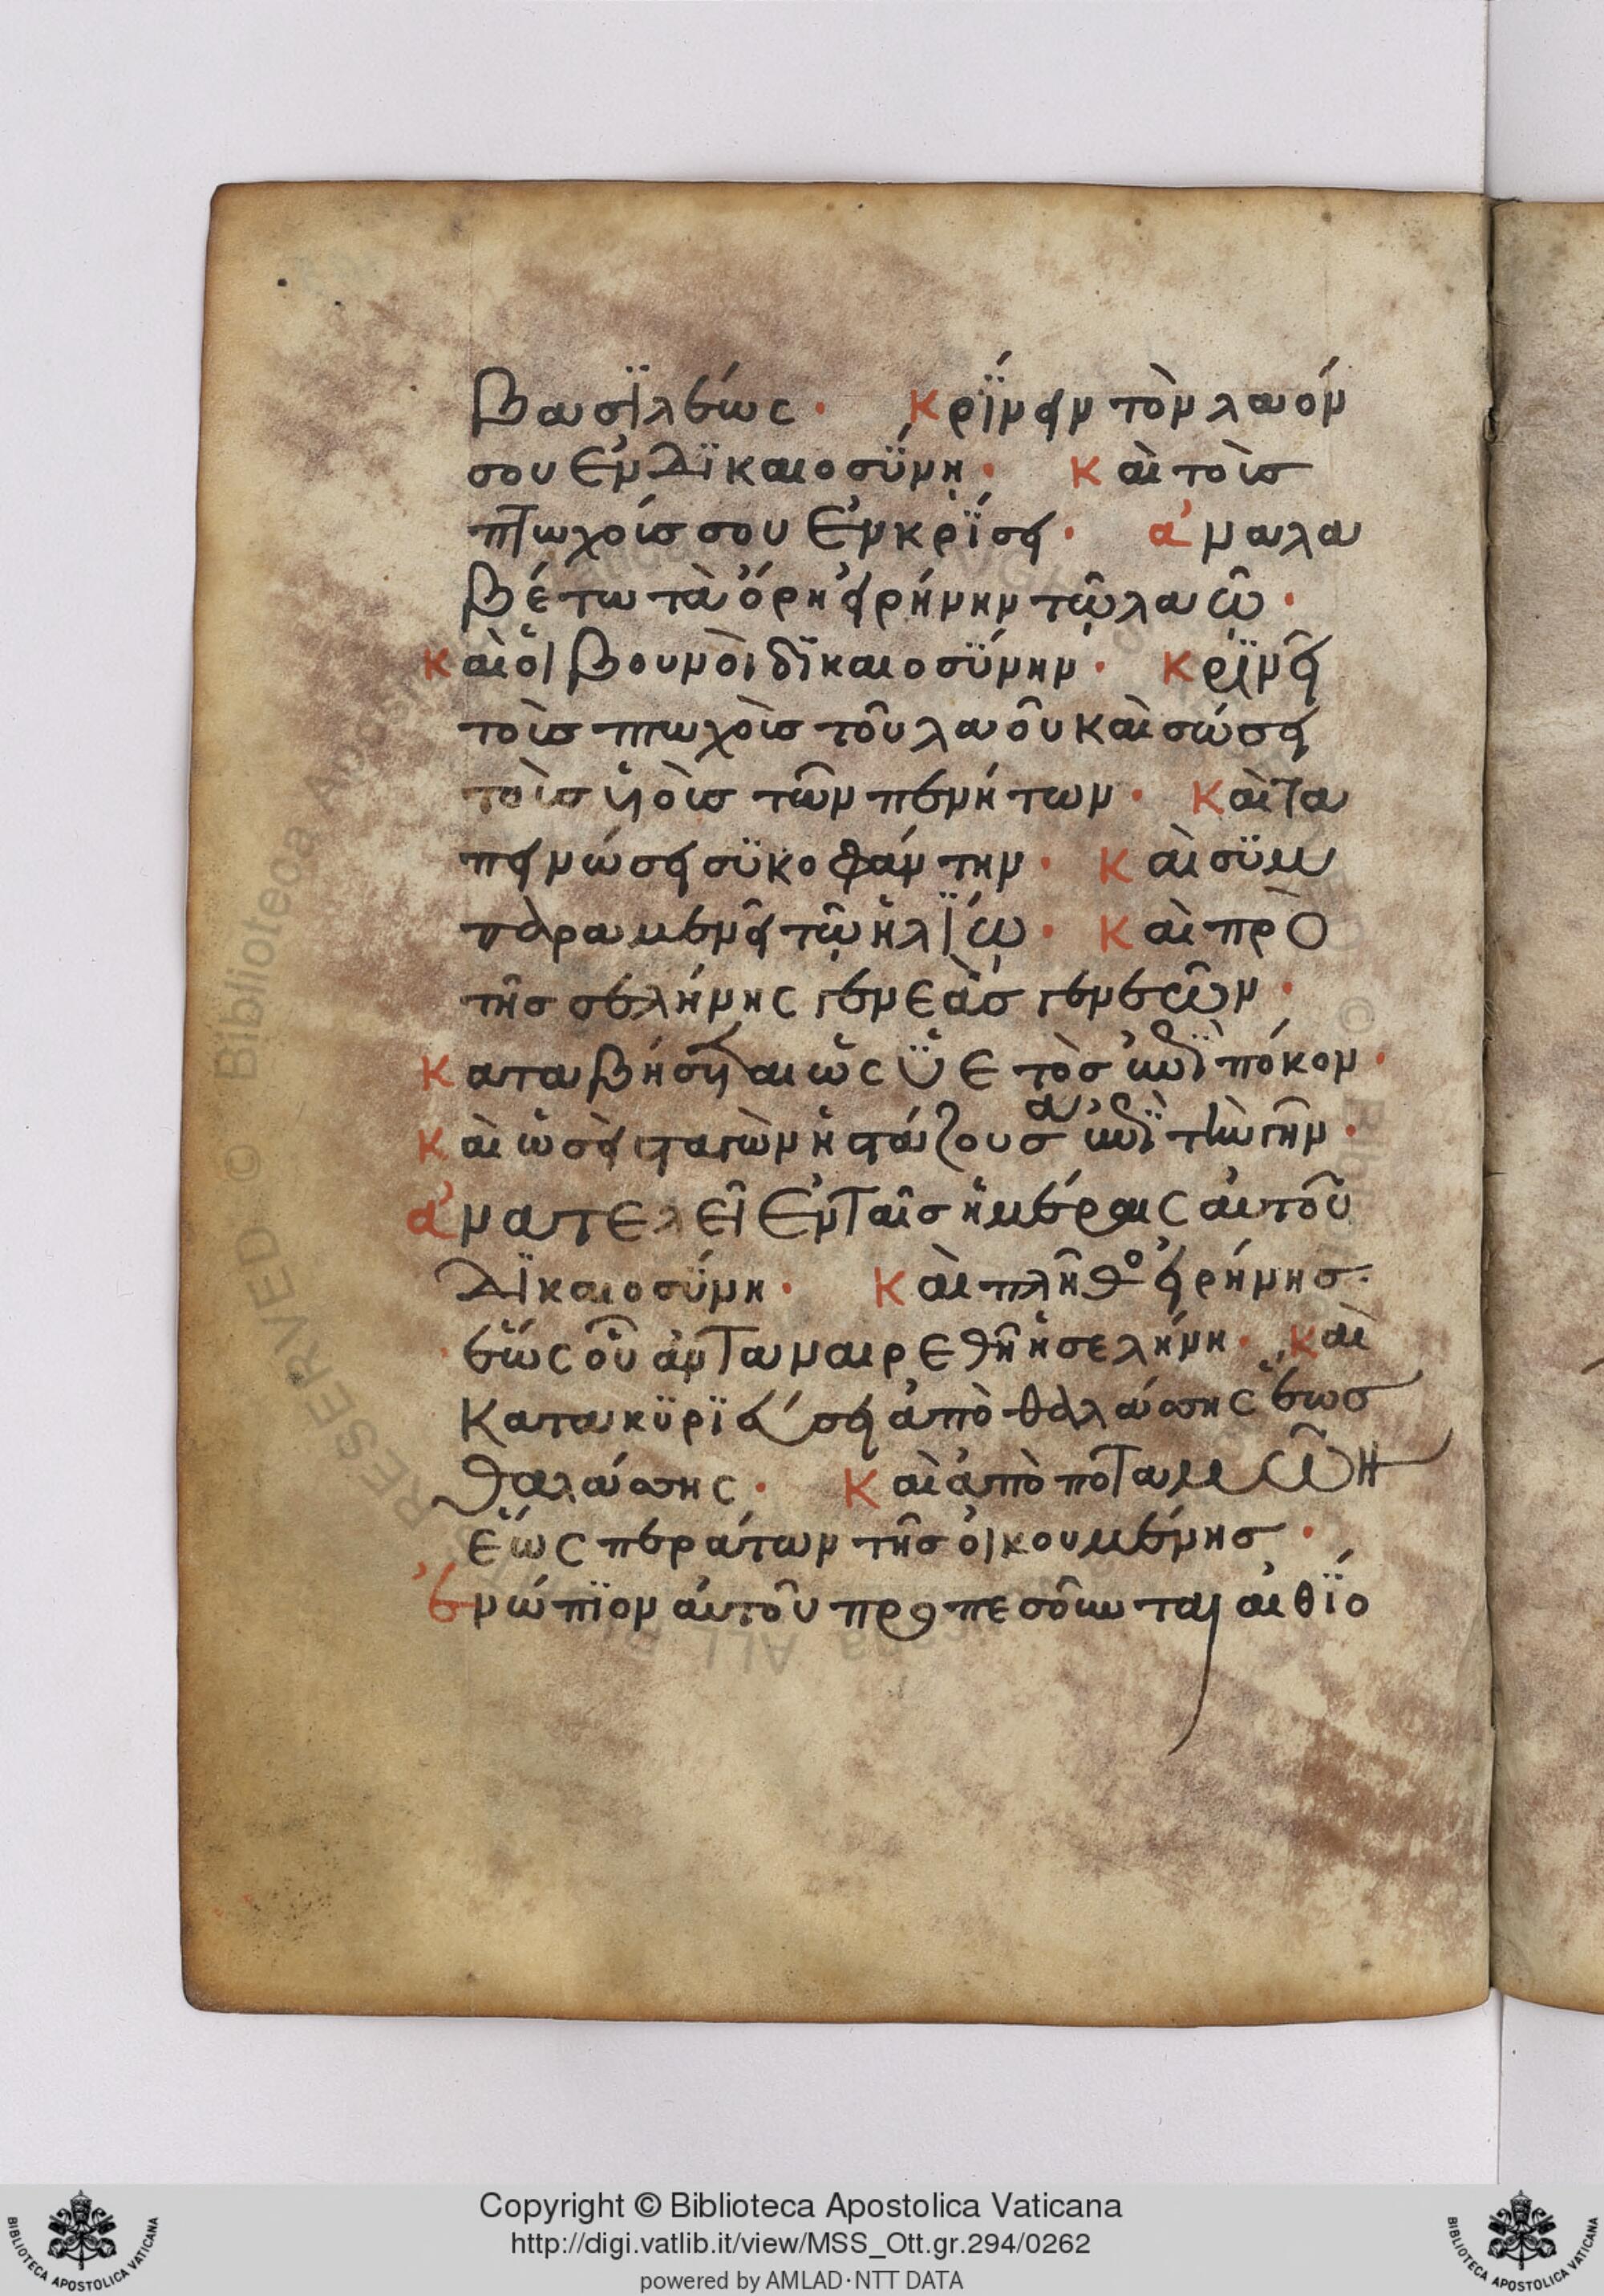 Βασϊλέως· Κρΐνειν τὸν λαόν
σου Ἐν Δϊκαιοσΰνῃ· Καὶ τοὶς
πτωχοίσ σου Ἐν κρΐσει· ἀναλα
Βέτω τὰ ὄρη εἰρήνην τῶ̣ λαῶ̣·
καὶ ὁι Βουνὸι δϊκαιοσΰνην· Κρϊνεῖ
τοὶσ πτωχοὶσ τοῦ λαοῦ καὶ σώσει
τοὶσ ὑιὸις τῶν πενήτων· Καὶ τα
πεινώσει σϋκοφάντην· Καὶ σϋμ
παραμενεῖ τῶ̣ ἡλΐω̣· Καὶ πρὸ
τῆσ σελήνης γενεὰσ γενεῶν·
Καταβήσεται ὡς ϋ̔ετὸσ ἐπῒ πόκον·
Καὶ ὡσεὶ σταγὼν ἡ στάζουσα ἐπῒ τὴν γῆν·
ἀνατελεῖ Ἐν ταῖσ ἡμέραις ἀυτοῦ
Δϊκαιοσΰνη· Καὶ πλῆθο εἰρήνησ·
ἕως οὗ ἀνταναιρεθῆ ἡ σελήνη· καὶ
Κατακϋρϊεύσει ἀπὸ θαλάσσης ἕωσ
θαλάσσης· Καὶ ἀπὸ ποταμῶΝ
ἕως περάτων τῆσ ὀικουμένησ·
ἐνώπϊον ἀυτοῦ προπεσοῦνται αἰθϊο
Copyright © Biblioteca Apostolica Vaticana
http://digi.vatlib.it/view/MSS_Ott.gr.294/0262
powered by AMLAD·NTT DATA
BIBLIOTECA APOSTOLICA VATICANA
BIBLIOTECA APOSTOLICA VATICANA